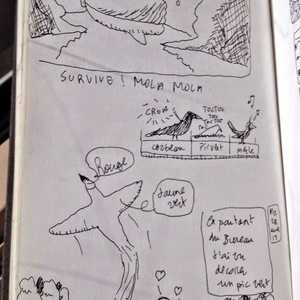 SURVIVE ! MOLA MOLA
CROA
TOCTOC
TOC
corbeau
Pivert
Rouge
Jaune
Vert
En partant
du Bureau
J'ai vu
décoller
un pic vert